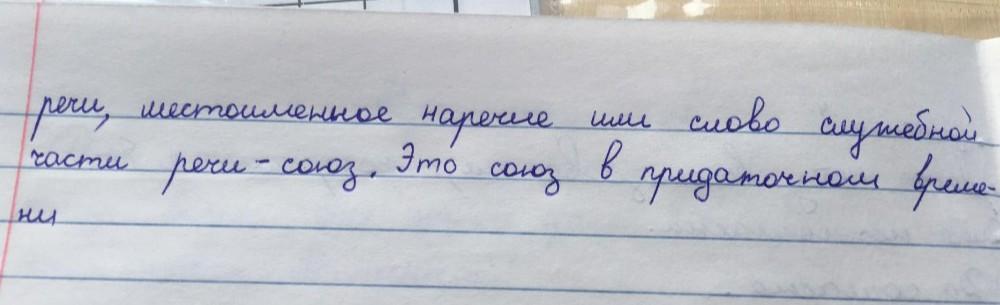 речи, местоименное наречие или слово служебной
части речи - союз. Это союз в придаточном време-
ни